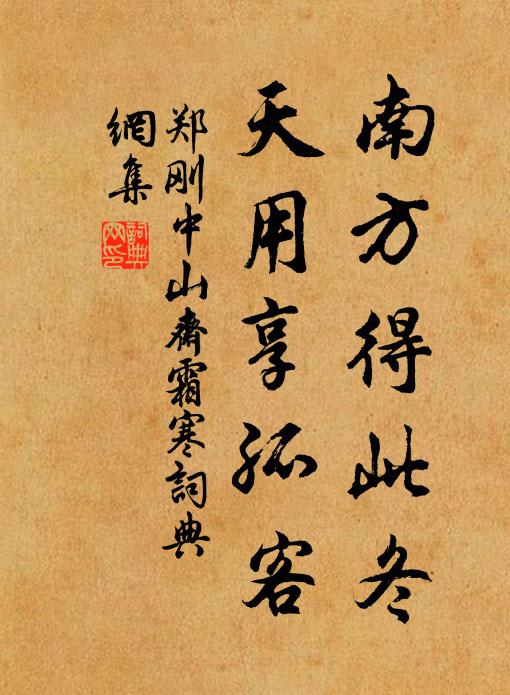 南方得此冬
天用享孤客
郑刚中山齋霜寒詞典
網集
詞典網印